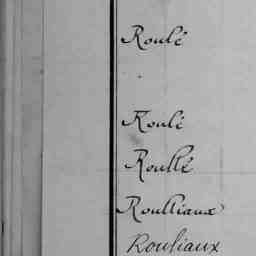 Roulé
Roulé
Roullé
Roulliaux
Rouliaux